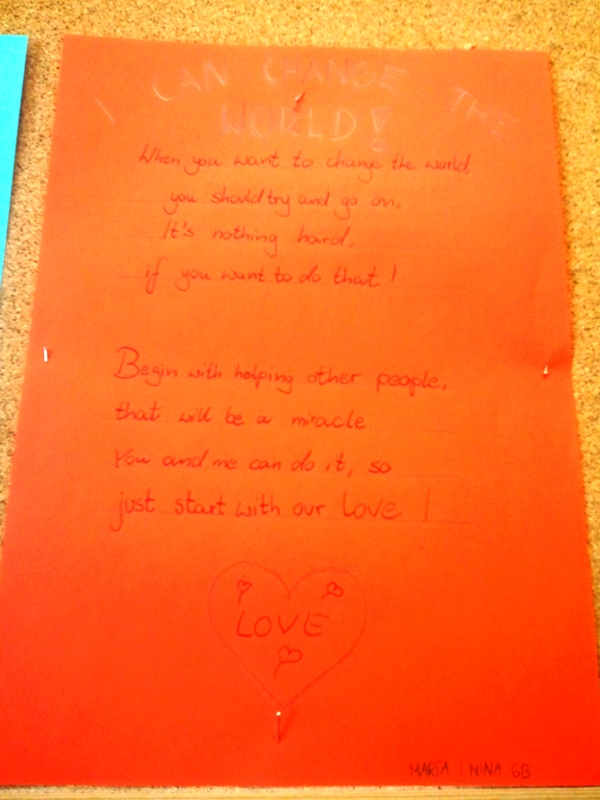 I CAN CHANGE THE
WORLD!
When you want to change the world,
you should try and go on.
It's nothing hard,
if you want to do that!
Begin with helping other people,
that will be a miracle
You and me can do it, so
just start with our love!
LOVE
MARTA I NINA 6B